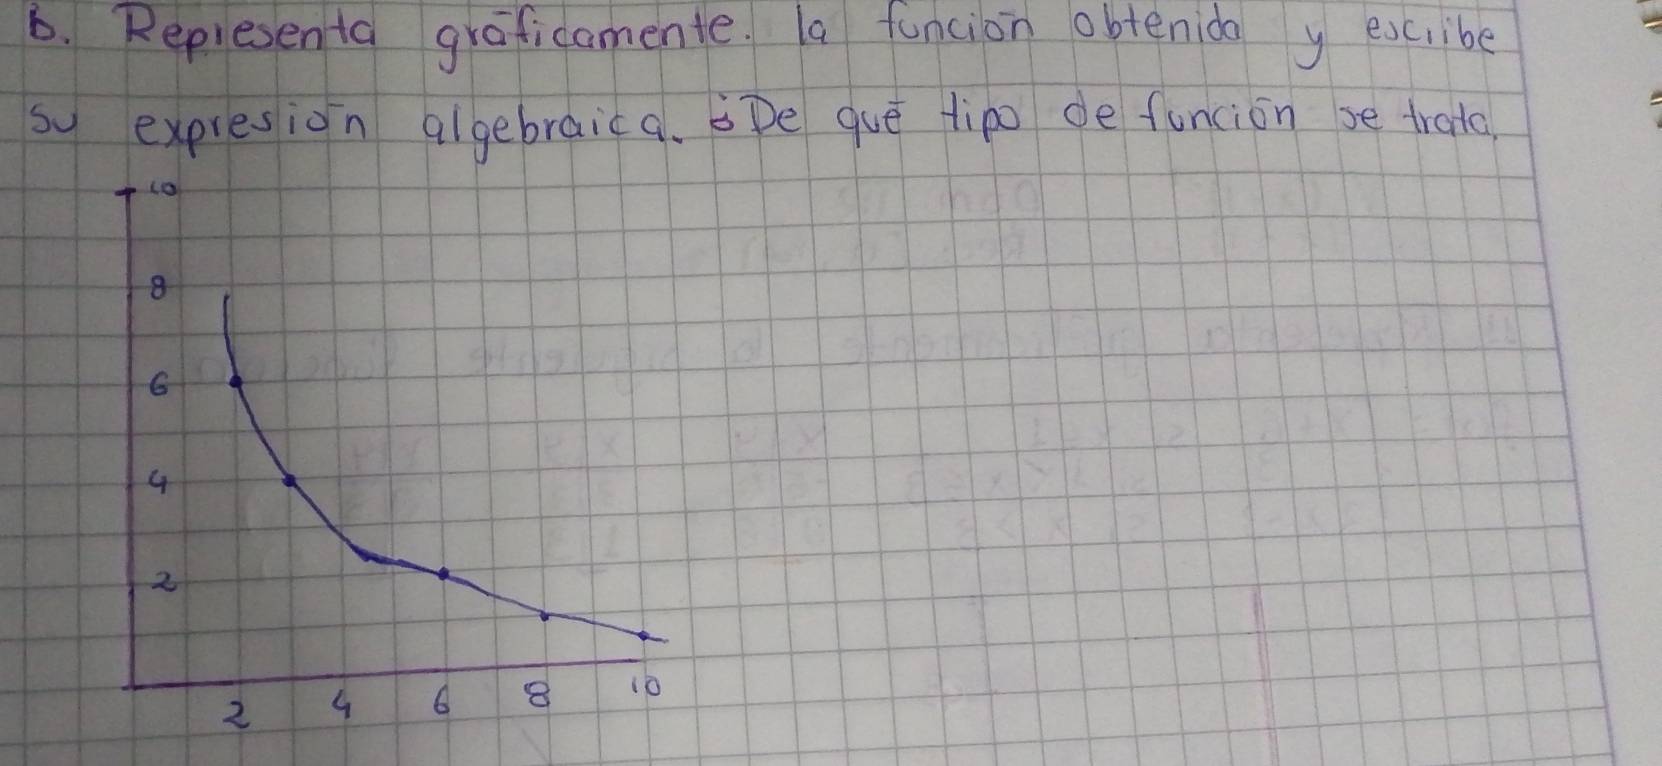 b. Representa gráficamente. la función obtenida y escribe
su expresión algebraica. ¿De qué tipo de función se trata.
10
8
6
4
2
2 4 6 8 10